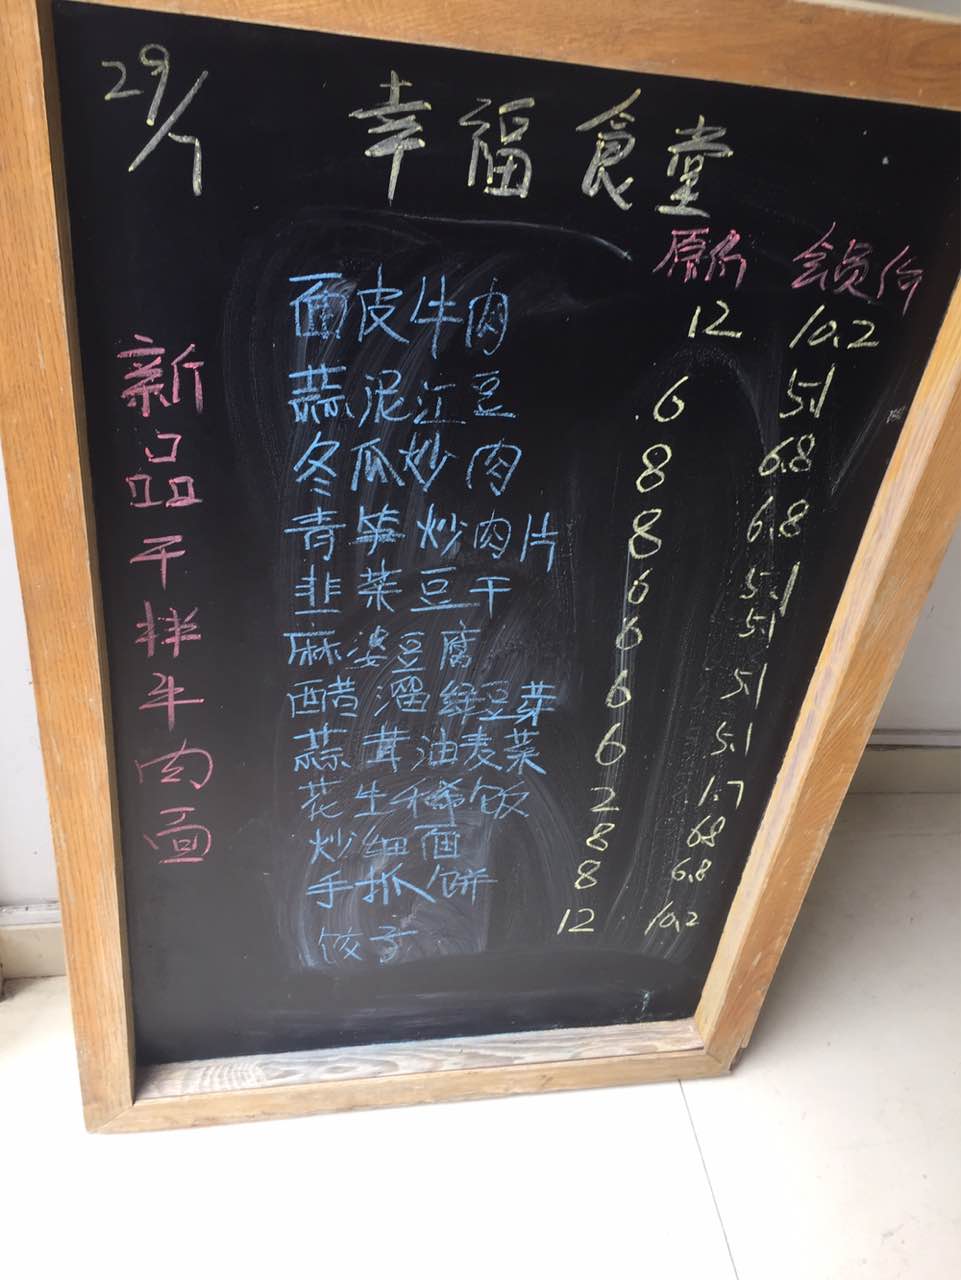 29/7 幸福食堂
原价 会员价
面皮牛肉 12 10.2
蒜泥江豆 6 5.1
冬瓜炒肉 8 6.8
青笋炒肉片 8 6.8
韭菜豆干 6 5.1
麻婆豆腐 6 5.1
醋溜绿豆芽 6 5.1
蒜茸油麦菜 6 5.1
花生稀饭 2 1.7
炒细面 8 6.8
手抓饼 8 6.8
饺子 12 10.2
新品干拌牛肉面